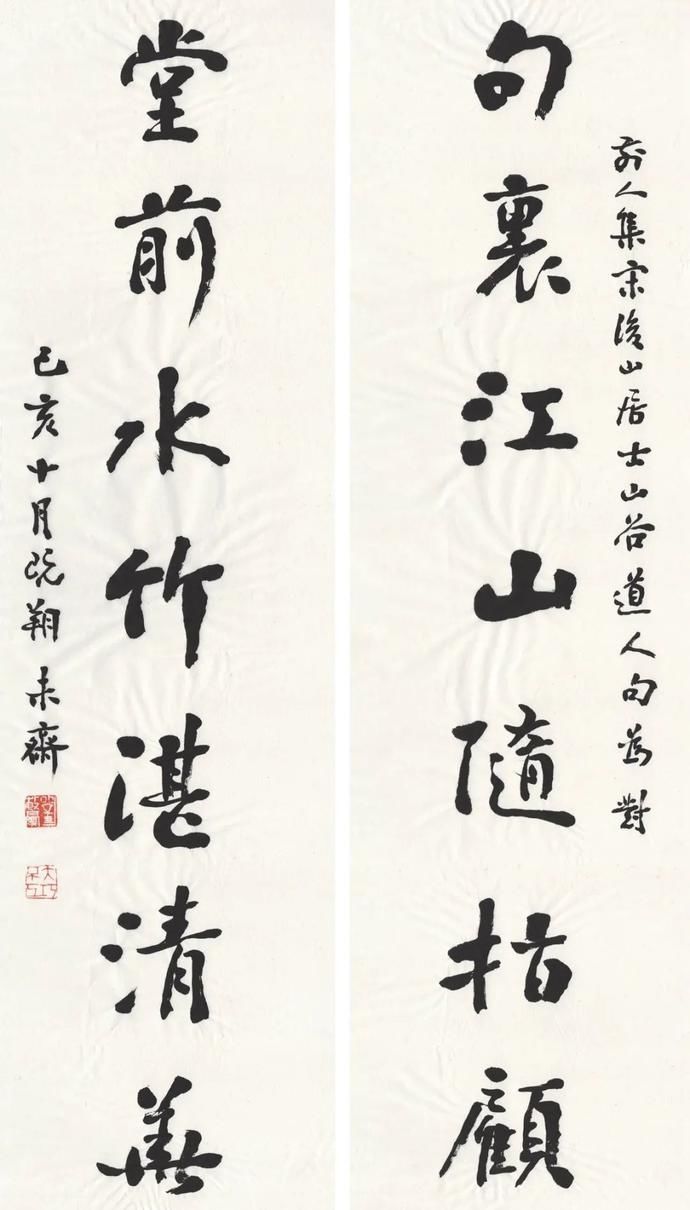 前人集宋後山居士山谷道人句為對
句裏江山隨指顧
堂前水竹湛清華
己亥十月既翔未齋